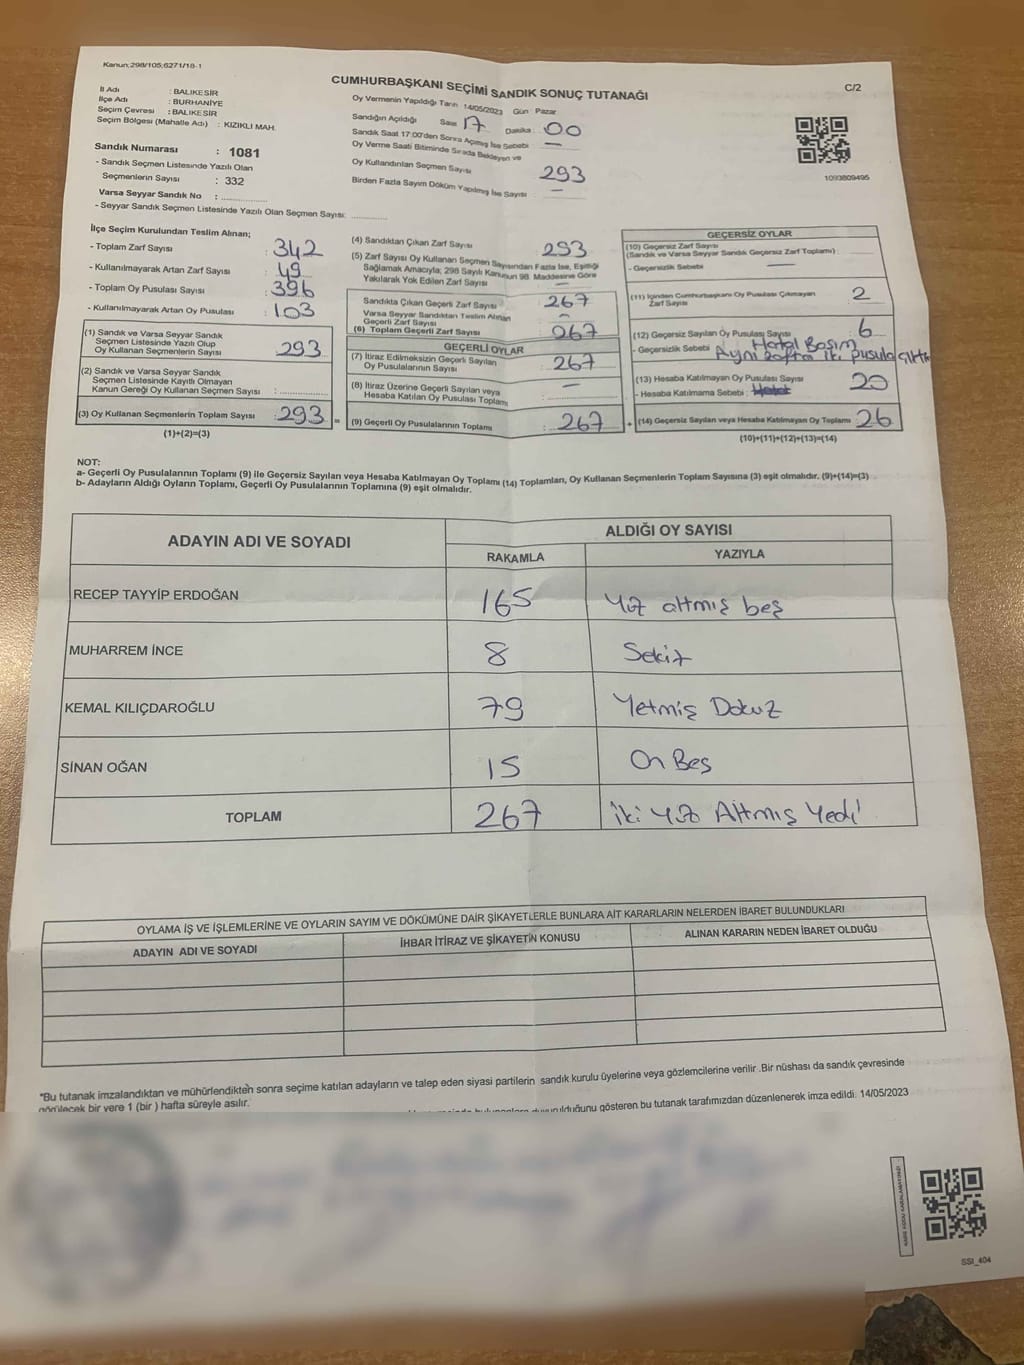 Kanun;298/105;6271/18-1
CUMHURBAŞKANI SEÇİMİ SANDIK SONUÇ TUTANAĞI
C/2
İl Adı : BALIKESİR
İlçe Adı : BURHANİYE
Seçim Çevresi : BALIKESİR
Seçim Bölgesi (Mahalle Adı) : KIZIKLI MAH.
Sandık Numarası : 1081
- Sandık Seçmen Listesinde Yazılı Olan
Seçmenlerin Sayısı : 332
Varsa Seyyar Sandık No : ..............
- Seyyar Sandık Seçmen Listesinde Yazılı Olan Seçmen Sayısı: ............
Oy Vermenin Yapıldığı Tarih 14/05/2023 Gün Pazar
Sandığın Açıldığı Saat 17 Dakika 00
Sandık Saat 17:00'den Sonra Açılmış İse Sebebi : —
Oy Verme Saati Bitiminde Sırada Bekleyen ve
Oy Kullandırılan Seçmen Sayısı 293
Birden Fazla Sayım Döküm Yapılmış İse Sayısı : —
1093809495
İlçe Seçim Kurulundan Teslim Alınan;
- Toplam Zarf Sayısı : 342
- Kullanılmayarak Artan Zarf Sayısı : 49
- Toplam Oy Pusulası Sayısı : 396
- Kullanılmayarak Artan Oy Pusulası : 103
(1) Sandık ve Varsa Seyyar Sandık
Seçmen Listesinde Yazılı Olup
Oy Kullanan Seçmenlerin Sayısı : 293
(2) Sandık ve Varsa Seyyar Sandık
Seçmen Listesinde Kayıtlı Olmayan
Kanun Gereği Oy Kullanan Seçmen Sayısı : ..............
(3) Oy Kullanan Seçmenlerin Toplam Sayısı : 293 =
(1)+(2)=(3)
(4) Sandıktan Çıkan Zarf Sayısı : 293
(5) Zarf Sayısı Oy Kullanan Seçmen Sayısından Fazla İse, Eşitliği
Sağlamak Amacıyla; 298 Sayılı Kanunun 98. Maddesine Göre
Yakılarak Yok Edilen Zarf Sayısı : —
Sandıkta Çıkan Geçerli Zarf Sayısı : 267
Varsa Seyyar Sandıktan Teslim Alınan
Geçerli Zarf Sayısı : —
(6) Toplam Geçerli Zarf Sayısı : 267
GEÇERLİ OYLAR
(7) İtiraz Edilmeksizin Geçerli Sayılan
Oy Pusulalarının Sayısı : 267
(8) İtiraz Üzerine Geçerli Sayılan veya
Hesaba Katılan Oy Pusulası Toplamı : —
(9) Geçerli Oy Pusulalarının Toplamı : 267 +
GEÇERSİZ OYLAR
(10) Geçersiz Zarf Sayısı
(Sandık ve Varsa Seyyar Sandık Geçersiz Zarf Toplamı) :
- Geçersizlik Sebebi —
(11) İçinden Cumhurbaşkanı Oy Pusulası Çıkmayan
Zarf Sayısı : 2
(12) Geçersiz Sayılan Oy Pusulası Sayısı : 6
- Geçersizlik Sebebi : Hatalı Basım
Aynı zaftan iki pusula çıktı
(13) Hesaba Katılmayan Oy Pusulası Sayısı 20
- Hesaba Katılmama Sebebi :
(14) Geçersiz Sayılan veya Hesaba Katılmayan Oy Toplamı : 26
(10)+(11)+(12)+(13)=(14)
NOT:
a- Geçerli Oy Pusulalarının Toplamı (9) ile Geçersiz Sayılan veya Hesaba Katılmayan Oy Toplamı (14) Toplamları, Oy Kullanan Seçmenlerin Toplam Sayısına (3) eşit olmalıdır. (9)+(14)=(3)
b- Adayların Aldığı Oyların Toplamı, Geçerli Oy Pusulalarının Toplamına (9) eşit olmalıdır.
ADAYIN ADI VE SOYADI ALDIĞI OY SAYISI
RAKAMLA YAZIYLA
RECEP TAYYİP ERDOĞAN 165 Yüz altmış beş
MUHARREM İNCE 8 Sekiz
KEMAL KILIÇDAROĞLU 79 Yetmiş Dokuz
SİNAN OĞAN 15 On Beş
TOPLAM 267 İki Yüz Altmış Yedi
OYLAMA İŞ VE İŞLEMLERİNE VE OYLARIN SAYIM VE DÖKÜMÜNE DAİR ŞİKAYETLERLE BUNLARA AİT KARARLARIN NELERDEN İBARET BULUNDUKLARI
ADAYIN ADI VE SOYADI İHBAR İTİRAZ VE ŞİKAYETİN KONUSU ALINAN KARARIN NEDEN İBARET OLDUĞU
*Bu tutanak imzalandıktan ve mühürlendikten sonra seçime katılan adayların ve talep eden siyasi partilerin sandık kurulu üyelerine veya gözlemcilerine verilir .Bir nüshası da sandık çevresinde
görülecek bir yere 1 (bir ) hafta süreyle asılır.
gösteren bu tutanak tarafımızdan düzenlenerek imza edildi. 14/05/2023
KARE KODU KARALAMAYINIZ!
SSI_404